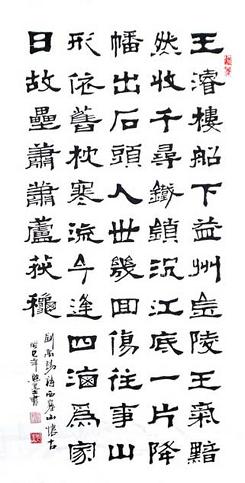 王濬樓船下益州金陵王氣黯
然收千尋鐵鎖沉江底一片降
幡出石頭人世幾回傷往事山
形依舊枕寒流今逢四海為家
日故壘蕭蕭蘆荻穐
劉禹錫詩西塞山懷古